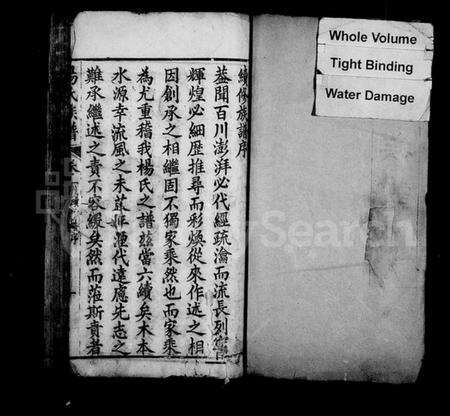 續修族譜序
蓋聞百川澎湃必代經疏瀹而流長列宿
輝煌必細歷推尋而彩煥從來作述之相
因創承之相繼固不獨家乘然也而家乘
為尤重稽我楊氏之譜茲當六續矣木本
水源幸流風之未 代遠慮先志之
難承繼述之責不容緩矣然而蒞斯責者
氏族譜 卷
Whole Volume
Tight Binding
Water Damage
Search